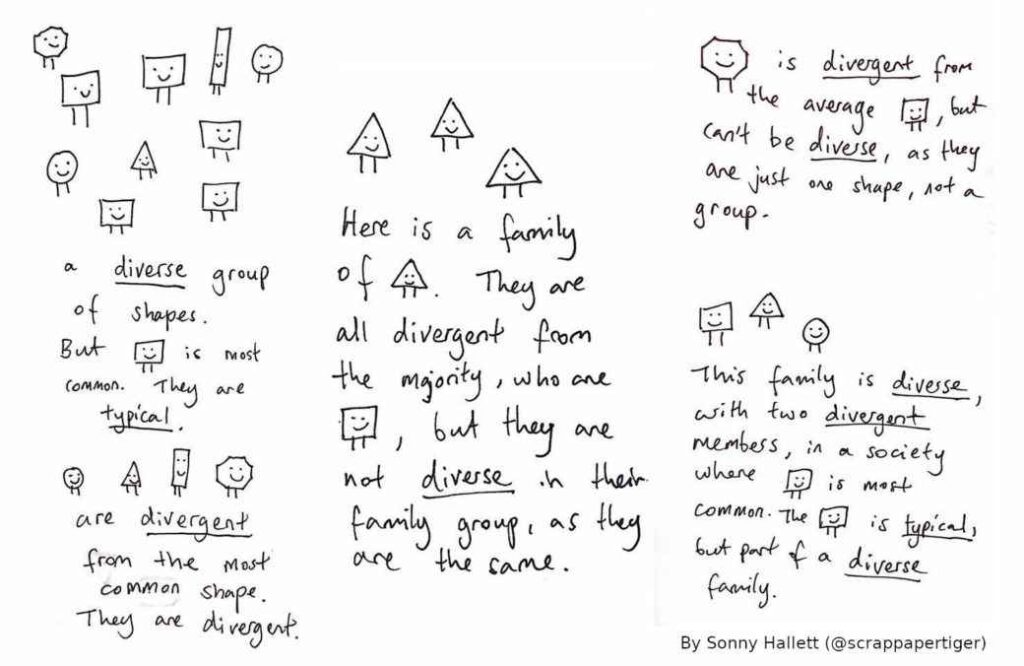 a diverse group
of shapes.
But is most
common. They are
typical.
are divergent
from the most
common shape.
They are divergent.
Here is a family
of . They are
all divergent from
the majority, who are
, but they are
not diverse in their
family group, as they
are the same.
is divergent from
the average , but
can't be diverse, as they
are just one shape, not a
group.
This family is diverse,
with two divergent
members, in a society
where is most
common. The is typical,
but part of a diverse
family.
By Sonny Hallett (@scrappapertiger)